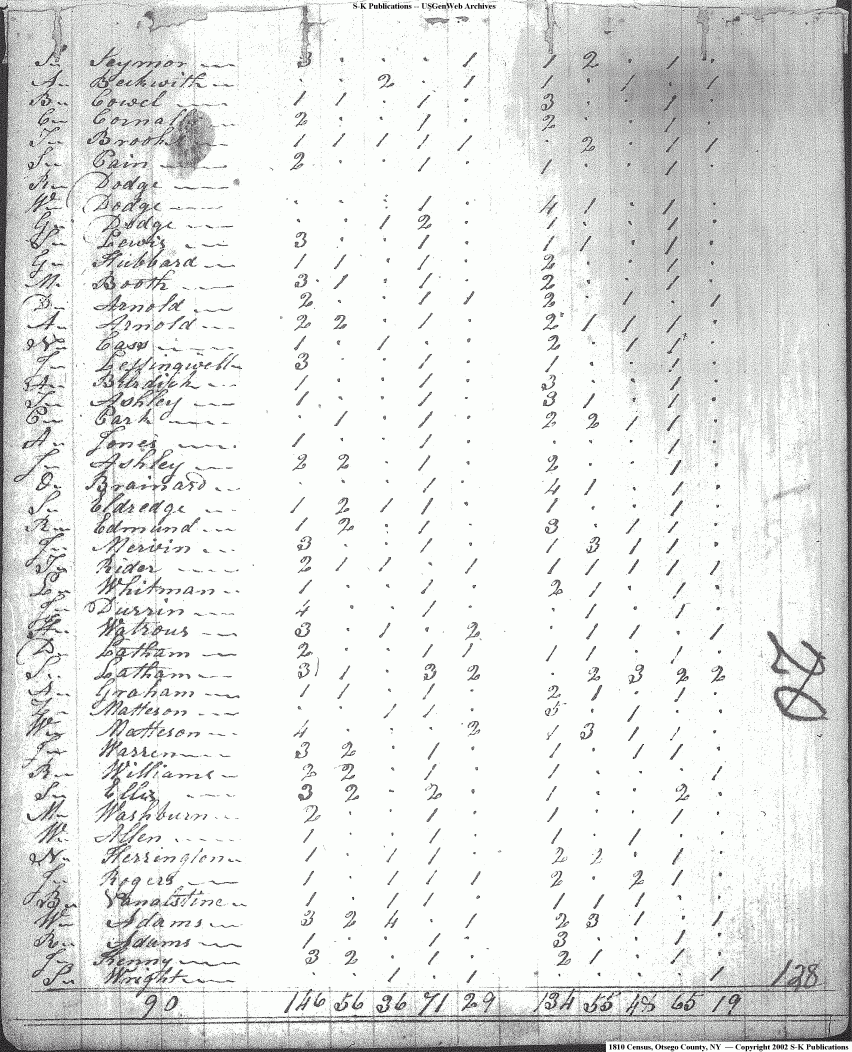 S-K Publications -- USGenWeb Archives
Seymor 3 . . . 1 1 2 . 1 .
A Beckwith . . 2 . 1 1 . 1 . 1
B Cowel 1 1 . 1 . 3 . . 1 .
C 2 . . . . 2 . . 1 .
J Brook 1 1 1 1 1 . 2 . 1 1
S Cain 2 . . 1 . 1 . . 1 .
R Dodge
W Dodge . . . 1 . 4 1 . 1 .
G Dodge . . 1 2 . 1 . . 1 .
Lewis 3 . . 1 . 1 1 . 1 .
G Hubbard 1 1 . 1 . 2 . . 1 .
M Booth 3 1 . 1 . 2 . . 1 .
D Arnold 2 . . 1 1 2 . 1 . 1
A Arnold 2 2 . 1 . 2 1 1 1 .
N Cass 1 . 1 . . 2 . 1 1 .
Leffingwell 3 . . 1 . 1 . . 1 .
A Burdick 1 . . 1 . 3 . . 1 .
Ashley 1 . . 1 . 3 1 . 1 .
C Park . 1 . 1 . 2 2 1 1 .
A Jones 1 . . 1 . . . . 1 .
S Ashley 2 2 . 1 . 2 . . 1 .
O Brainard . . . 1 . 4 1 . 1 .
S Eldredge 1 2 1 1 . 1 . . 1 .
R Edmund 1 2 . 1 . 3 . 1 1 .
J Mervin 3 . . 1 . 1 3 1 1 .
Rider 2 1 1 . 1 1 1 1 1 1
Whitman 1 . . 1 . 2 1 . 1 .
Durrin 4 . . 1 . . 1 . 1 .
Watrous 3 . 1 . 2 . 1 1 . 1
D Latham 2 . . 1 1 1 1 . 1 .
S Latham 3 1 . 3 2 . 2 3 2 2
A Graham 1 1 . 1 . 2 1 . 1 .
Matteson . . 1 1 . 5 . 1 . .
W Matteson 4 . . . 2 1 3 1 . .
Warren 3 2 . 1 . 1 . 1 1 .
R Williams 2 2 . 1 . 1 . . . 1
S Ellis 3 2 . 2 . 1 . . 2 .
M Washburn 2 . . . . 1 . . 1 .
W Allen 1 . 1 . . 1 . 1 . .
N Herrington 1 . 1 1 . 2 2 . 1 .
J Rogers 1 . 1 1 1 2 . 2 . .
B Vanalstine 1 . 1 1 . 1 1 1 . .
W Adams 3 2 4 . 1 2 3 1 . 1
R Adams 1 . . 1 . 3 . . 1 .
J Kenny 3 2 . . . 2 1 . 1 .
S Wright . . 1 . 1 . . . . 1
20
128
90 146 56 36 71 29 134 55 48 65 19
1810 Census, Otsego County, NY — Copyright 2002 S-K Publications